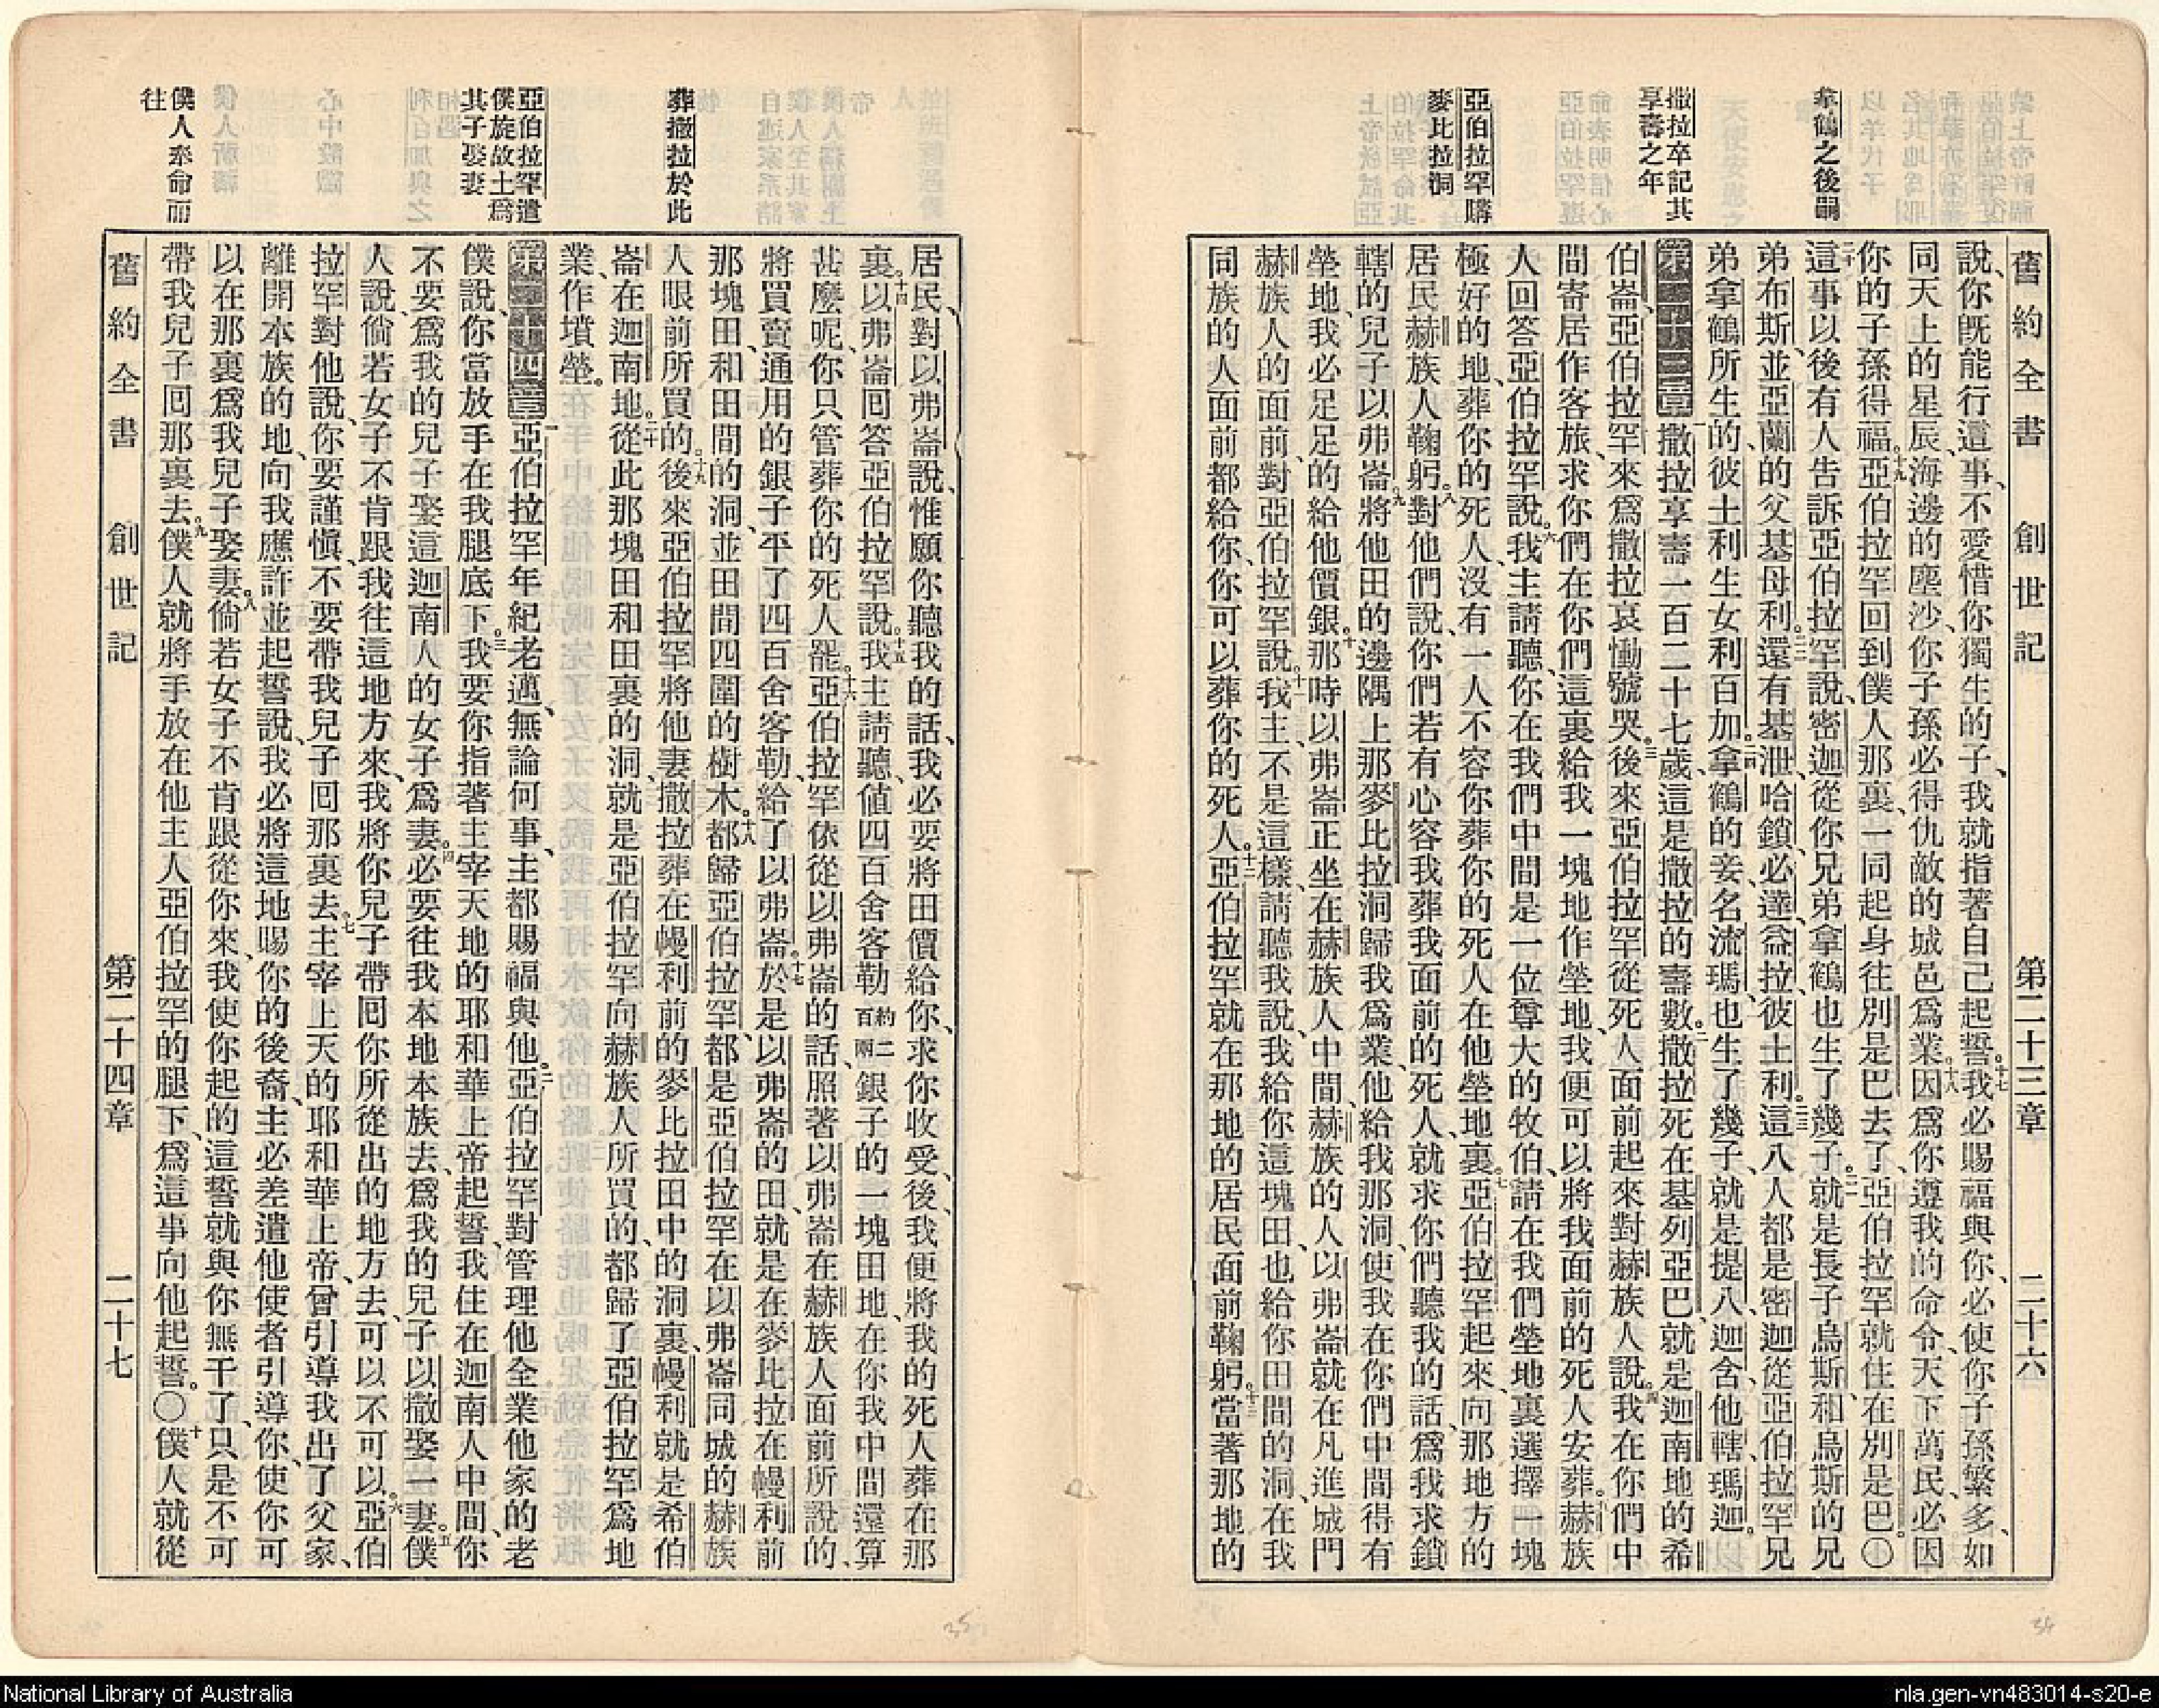 舊約全書　創世記　第二十三章　二十六
拿鶴之後嗣
撒拉卒記其
享壽之年
亞伯拉罕購
麥比拉洞
說、你旣能行這事、不愛惜你獨生的子、我就指著自己起誓。十七我必賜福與你、必使你子孫繁多、如
同天上的星辰、海邊的塵沙、你子孫必得仇敵的城邑爲業。十八因爲你遵我的命令、天下萬民、必因
你的子孫得福。十九亞伯拉罕回到僕人那裏、一同起身往別是巴去了、亞伯拉罕就住在別是巴。〇
二十這事以後有人吿訴亞伯拉罕說、密迦從你兄弟拿鶴也生了幾子。二一就是長子烏斯、和烏斯的兄
弟布斯、並亞蘭的父基母利。二二還有基泄、哈鎖、必達、益拉、彼土利。二三這八人都是密迦從亞伯拉罕兄
弟拿鶴所生的、彼土利生女利百加。二四拿鶴的妾、名流瑪、也生了幾子、就是提八、迦含、他轄、瑪迦。
第二十三章一撒拉享壽一百二十七歲、這是撒拉的壽數。二撒拉死在基列亞巴、就是迦南地的希
伯崙、亞伯拉罕、來爲撒拉哀慟號哭。三後來亞伯拉罕從死人面前起來、對赫族人說。四我在你們中
間寄居作客旅、求你們在你們這裏給我一塊地作塋地、我便可以將我面前的死人安葬。五赫族
人回答亞伯拉罕說。六我主請聽、你在我們中間是一位尊大的牧伯、請在我們塋地裏選擇一塊
極好的地、葬你的死人、沒有一人不容你葬你的死人在他塋地裏。七亞伯拉罕起來、向那地方的
居民赫族人鞠躬。八對他們說、你們若有心容我葬我面前的死人、就求你們聽我的話、爲我求鎖
轄的兒子以弗崙。九將他田的邊隅上那麥比拉洞歸我爲業、他給我那洞、使我在你們中間得有
塋地、我必足足的給他價銀。十那時以弗崙正坐在赫族人中間、赫族的人以弗崙就在凡進城門
赫族人的面前、對亞伯拉罕說。十一我主、不是這樣、請聽我說、我給你這塊田、也給你田間的洞、在我
同族的人面前都給你、你可以葬你的死人。十二亞伯拉罕就在那地的居民面前鞠躬。十三當著那地的
葬撒拉於此
亞伯拉罕遣
僕旋故土爲
其子娶妻
僕人奉命而
往
居民、對以弗崙說、惟願你聽我的話、我必要將田價給你、求你收受、後我便將我的死人葬在那
裏。十四以弗崙回答亞伯拉罕說。十五我主請聽、値四百舍客勒約二百兩銀子的一塊田地、在你我中間還算
甚麼呢、你只管葬你的死人罷。十六亞伯拉罕依從以弗崙的話、照著以弗崙在赫族人面前所說的、
將買賣通用的銀子、平了四百舍客勒、給了以弗崙。十七於是以弗崙的田、就是在麥比拉在幔利前
那塊田、和田間的洞、並田間四圍的樹木。十八都歸亞伯拉罕、都是亞伯拉罕在以弗崙同城的赫族
人眼前所買的。十九後來亞伯拉罕將他妻撒拉葬在幔利前的麥比拉田中的洞裏、幔利就是希伯
崙、在迦南地。二十從此那塊田和田裏的洞、就是亞伯拉罕向赫族人所買的、都歸了亞伯拉罕爲地
業、作墳塋。
第二十四章一亞伯拉罕年紀老邁、無論何事、主都賜福與他。二亞伯拉罕對管理他全業他家的老
僕說、你當放手在我腿底下。三我要你指著主宰天地的耶和華上帝起誓、我住在迦南人中間、你
不要爲我的兒子娶這迦南人的女子爲妻。四必要往我本地本族去、爲我的兒子以撒娶一妻。五僕
人說、倘若女子不肯跟我往這地方來、我將你兒子帶回你所從出的地方去、可以不可以。六亞伯
拉罕對他說、你要謹愼、不要帶我兒子回那裏去。七主宰上天的耶和華上帝、曾引導我出了父家、
離開本族的地、向我應許並起誓說、我必將這地賜你的後裔、主必差遣他使者引導你、使你可
以在那裏爲我兒子娶妻。八倘若女子不肯跟從你來、我使你起的這誓就與你無干了、只是不可
帶我兒子回那裏去。九僕人就將手放在他主人亞伯拉罕的腿下、爲這事向他起誓。〇十僕人就從
舊約全書　創世記　第二十四章　二十七
35
34
National Library of Australia
nla.gen-vn483014-s20-e